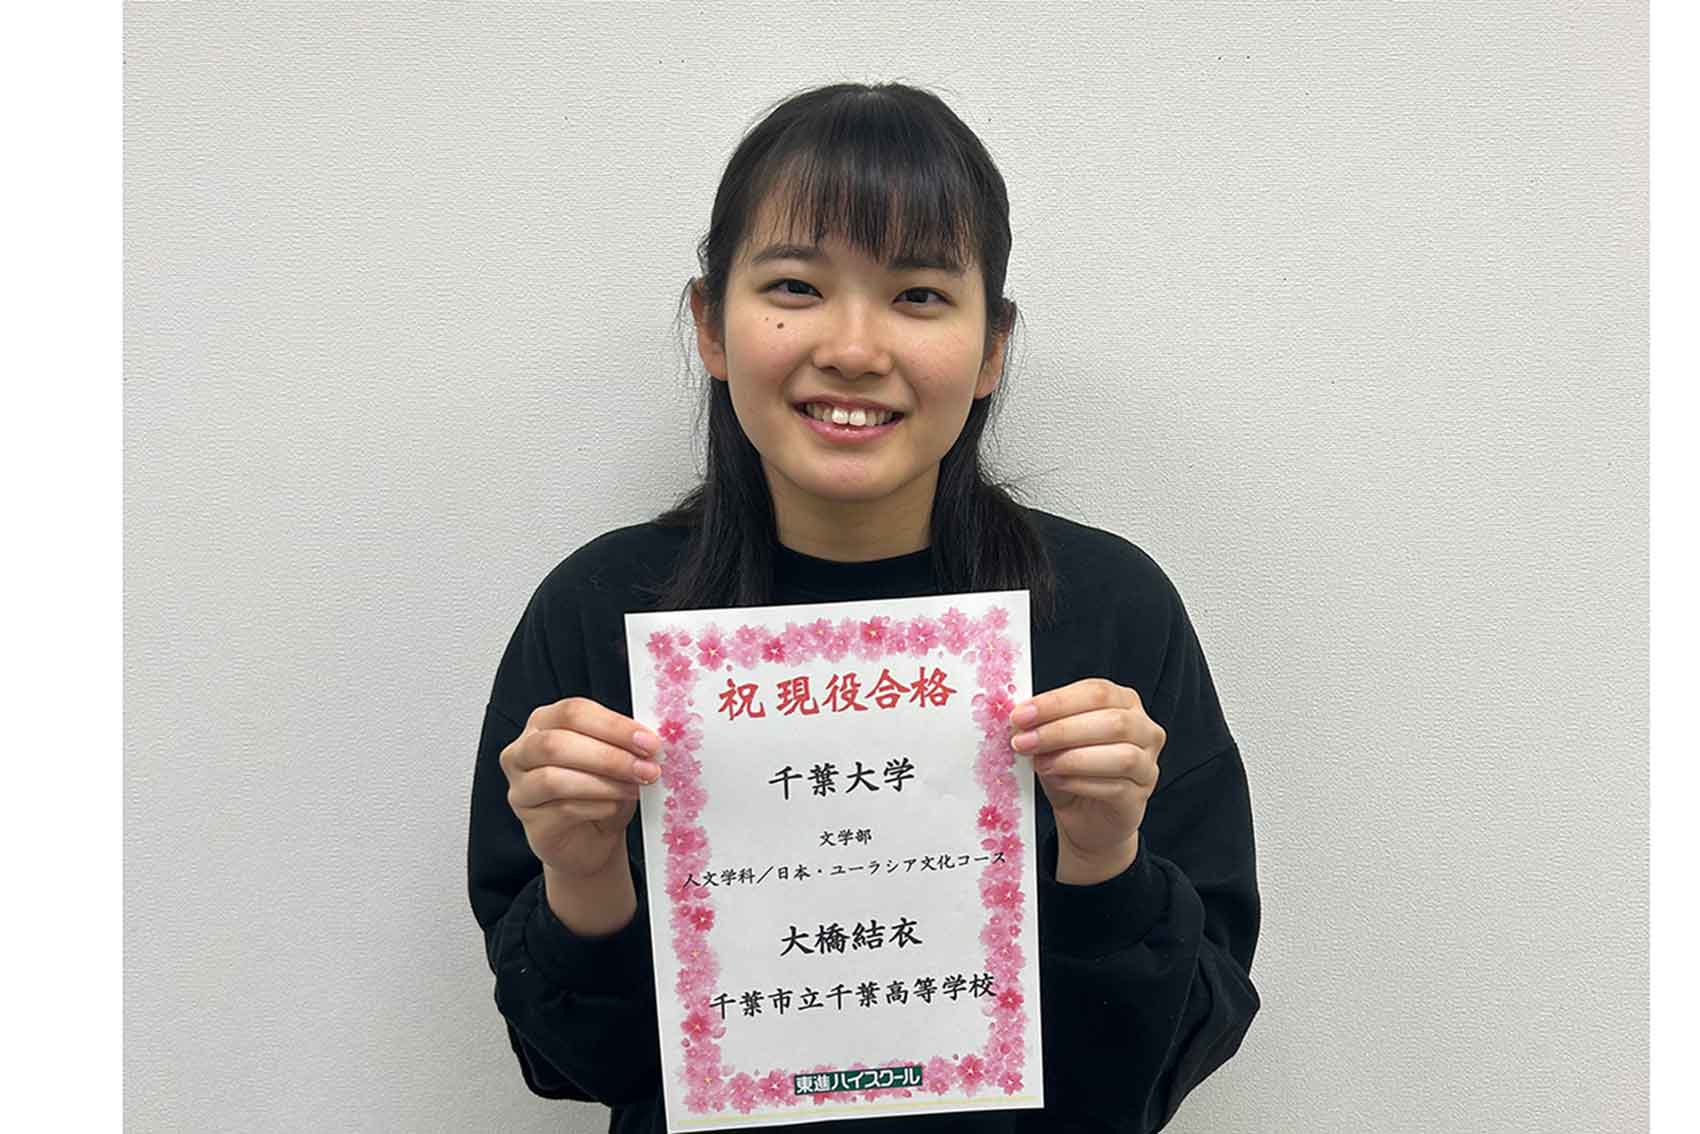 祝 現役合格
千葉大学
文学部
人文学科／日本・ユーラシア文化コース
大橋結衣
千葉市立千葉高等学校
東進ハイスクール